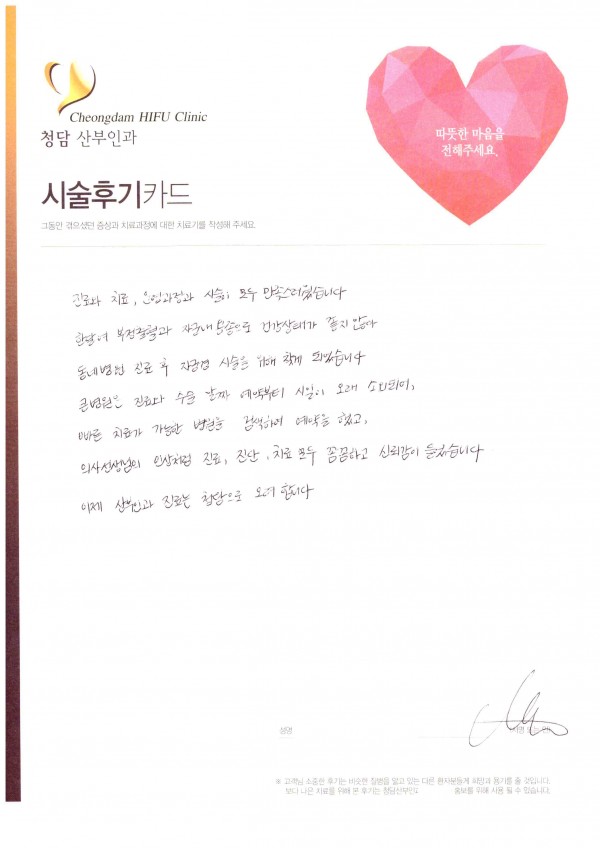 Cheongdam HIFU Clinic
청담 산부인과
따뜻한 마음을
전해주세요.
시술후기카드
그동안 겪으셨던 증상과 치료과정에 대한 치료기를 작성해 주세요.
진료와 치료, 운영과정과 시술이 모두 만족스러웠습니다
한달여 부정출혈과 자궁내 용종으로 건강상태가 좋지 않아
동네병원 진료 후 자궁경 시술을 위해 찾게 되었습니다
큰병원은 진료와 수술 날짜 예약부터 시일이 오래 소요되어,
빠른 치료가 가능한 병원을 검색하여 예약을 했고,
의사선생님의 인상처럼 진료, 진단, 치료 모두 꼼꼼하고 신뢰감이 들었습니다
이제 산부인과 진료는 청담으로 오려 합니다
성명
※ 고객님 소중한 후기는 비슷한 질병을 앓고 있는 다른 환자분들게 희망과 용기를 줄 것입니다.
보다 나은 치료를 위해 본 후기는 청담산부인 홍보를 위해 사용 될 수 있습니다.